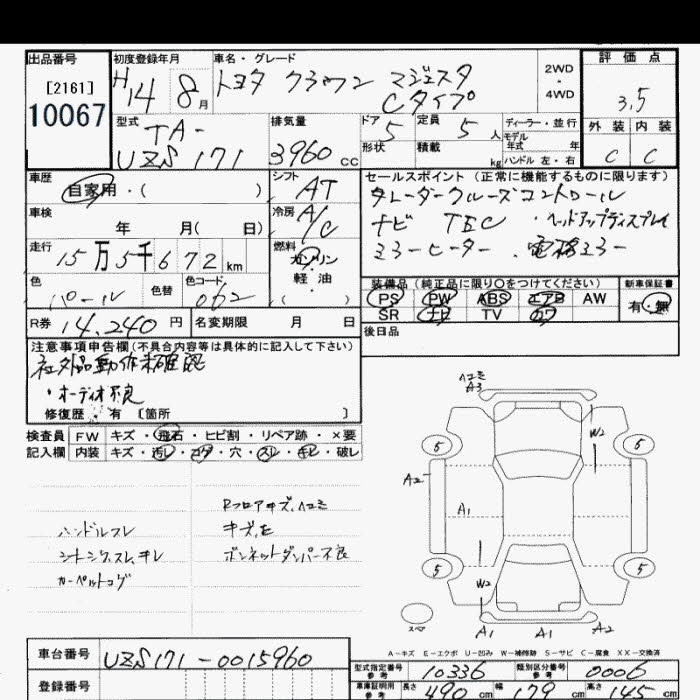 出品番号
[2161]
10067
初度登録年月
H14 8月
車名・グレード
トヨタ クラウン マジェスタ
Cタイプ
2WD
・
4WD
評価点
3.5
外装 内装
C C
型式
TA-
UZS171
排気量
3960 cc
ドア
5
定員
5 人
形状
積載
kg
ディーラー・並行
モデル
年式 年
ハンドル 左・右
車歴
自家用・( )
シフト
AT
車検
年 月( 日)
冷房
A/C
走行
15万5千672km
燃料
ガソリン
軽・油
( )
色
パール
色替
色コード
062
R券 14,240円
名変期限 月 日
セールスポイント (正常に機能するものに限ります)
ナビ TEC ・ヘッドアップディスプレイ
ミラーヒーター、電格ミラー
装備品(純正品に限り○をつけてください)
PS PW ABS エアB AW
SR ナビ TV カワ
新車保証書
有・無
後日品
注意事項申告欄(不具合内容等は具体的に記入して下さい)
社外品動作未確認
・オーディオ不良
修復歴・有 〔箇所 〕
検査員
記入欄
FW キズ・飛石・ヒビ割・リペア跡・×要
内装 キズ・汚レ・コゲ・穴・スレ・キレ・破レ
Rフロアキズ、ヘコミ
ハンドルスレ
シートシワ、スレ、キレ
ボンネットダンパー不良
カーペットコゲ
ヘコミ
A3
W2
5
5
A2
A1
5
5
W2
スペア
A1 A1 A2
A-キズ E-エクボ U-凹み W-補修跡 S-サビ C-腐食 XX-交換済
車台番号
UZS171-0015960
登録番号
型式指定番号
参考
10336
類別区分番号
参考
0006
車庫証明用
参考
長さ 490 cm 幅 179 cm 高さ 145 cm